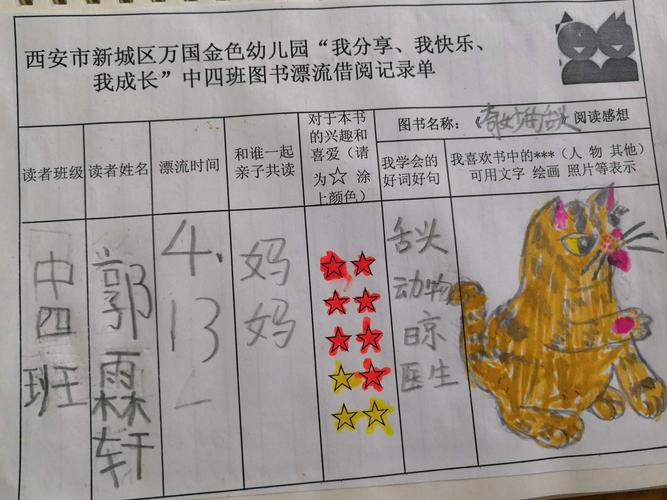 西安市新城区万国金色幼儿园“我分享、我快乐、
我成长”中四班图书漂流借阅记录单
读者班级
读者姓名
漂流时间
和谁一起
亲子共读
对于本书
的兴趣和
喜爱（请
为☆涂
上颜色）
图书名称：《奇妙的舌头》阅读感想
我学会的
好词好句
我喜欢书中的***（人 物 其他）
可用文字 绘画 照片等表示
中
四
班
郭
霖
轩
4.
13
妈
妈
舌头
动物
晾
医生